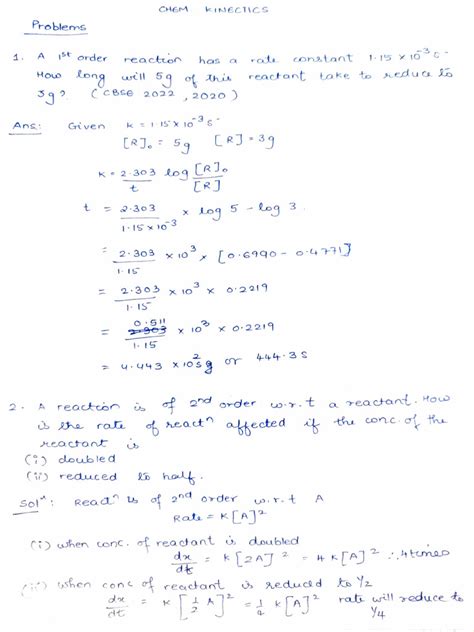 CHEM KINECTICS
Problems
1. A 1st order reaction has a rate constant 1.15 x 10^-3 s-
How long will 5g of this reactant take to reduce to
3g? (CBSE 2022, 2020)
Ans: Given k = 1.15 x 10^-3 s-
[R]₀ = 5g [R] = 3g
k = 2.303/t log [R]₀/[R]
t = 2.303/1.15x10^-3 x log 5 - log 3
= 2.303/1.15 x 10^3 x [0.6990 - 0.4771]
= 2.303/1.15 x 10^3 x 0.2219
= 0.511 2.303/1.15 x 10^3 x 0.2219
= 4.443 x 10^2 s or 444.3 s
2. A reaction is of 2nd order w.r.t a reactant. How
is the rate of reactn affected if the conc. of the
reactant is
(i) doubled
(ii) reduced to half.
Soln: Reacn is of 2nd order w.r.t A
Rate = K[A]^2
(i) when conc. of reactant is doubled
dx/dt = K[2A]^2 = 4K[A]^2 ∴ 4 times
(ii) when conc of reactant is reduced to 1/2
dx/dt = K[1/2 A]^2 = 1/4 K[A]^2 rate will reduce to
1/4